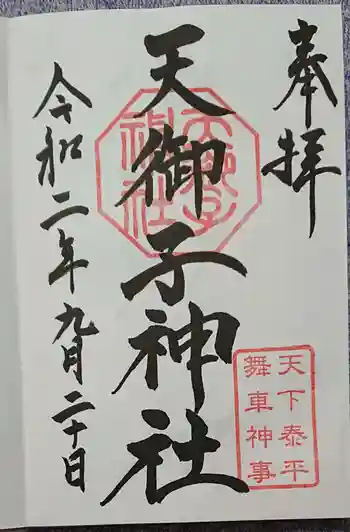 奉拝
天御子神社
天御子
神社
令和二年九月二十日
天下泰平
舞車神事